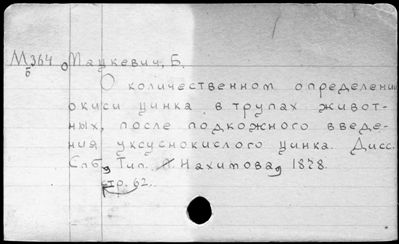 М364 Мацкевич, Б.
б
О количественном определении
окиси цинка в трупах живот-
ных, после подкожного введе-
ния уксуснокислого цинка. Дисс.
Спб, Тип. Нахимова, 1878.
стр. 62.